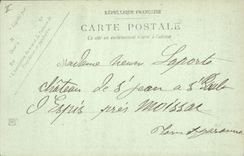 RÉPUBLIQUE FRANÇAISE
CARTE POSTALE
Ce côté est exclusivement réservé à l'adresse
Madame Henri Laporte
château de St Jean à St Paul
d'Espis près Moissac
Tarn et Garonne